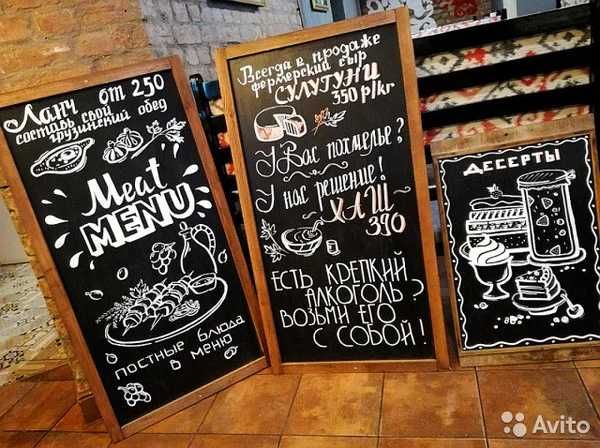 Ланч от 250
составь свой
грузинский обед
Meat
MENU
постные блюда
в меню
Всегда в продаже
фермерский сыр
СУЛУГУНИ
350 р/кг
У Вас похмелье?
У нас решение!
ХАШ
390
ЕСТЬ КРЕПКИЙ
АЛКОГОЛЬ?
ВОЗЬМИ ЕГО
С СОБОЙ!
ДЕСЕРТЫ
Avito